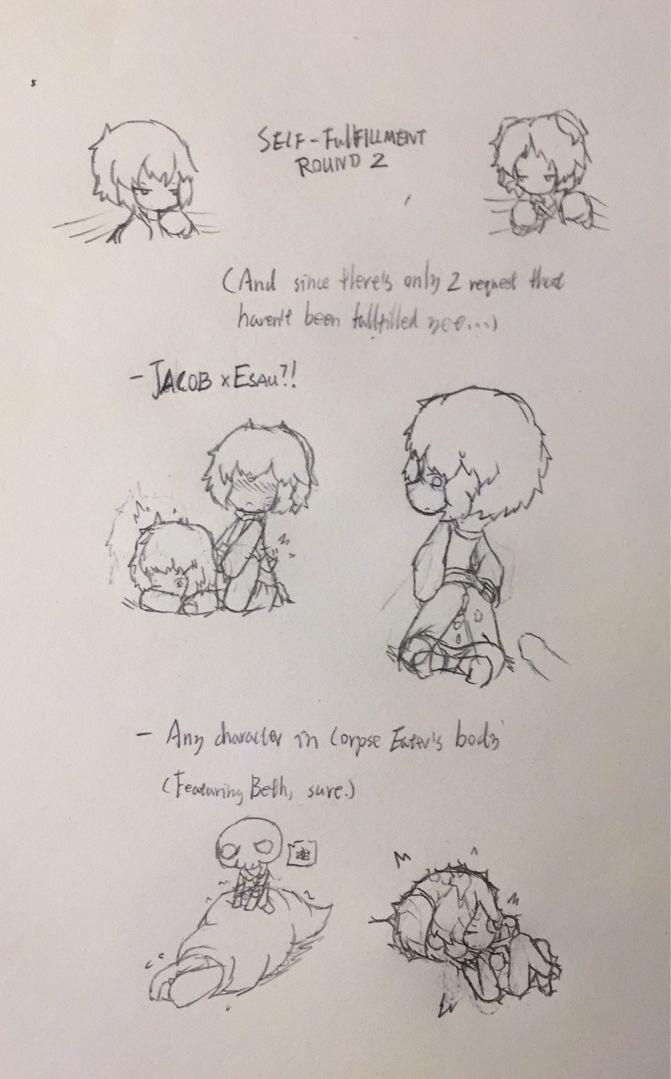 SELF-FulFILLMENT
ROUND 2
(And since there's only 2 request that
haven't been fullfilled yet...)
- JACOB x ESAU?!
- Any character in Corpse Eater's body
(Featuring Beth, sure.)